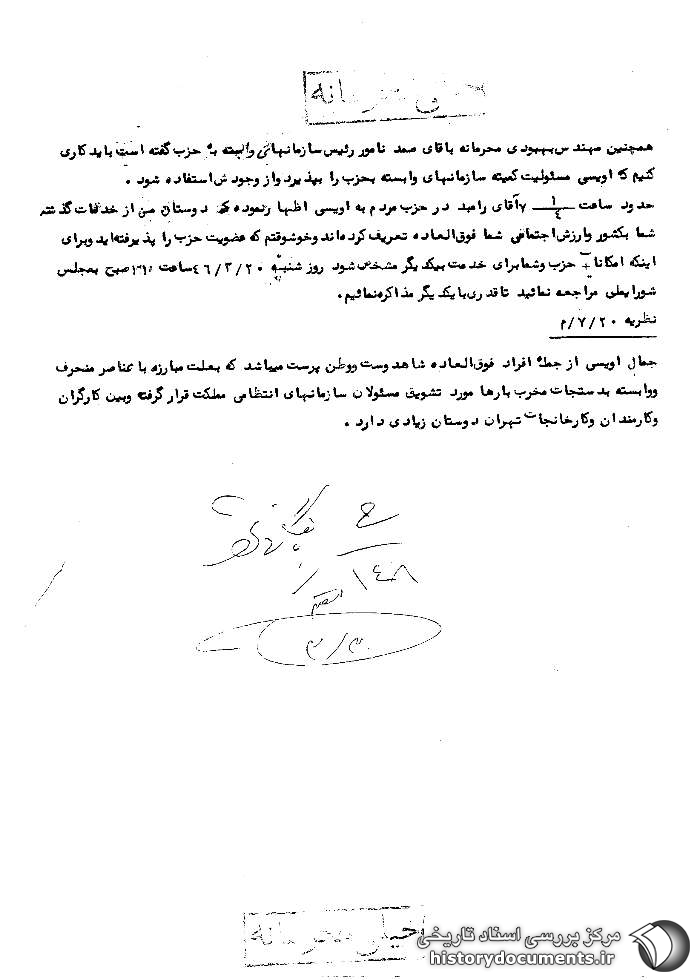 خیلی محرمانه
همچنین مهندس بهبودی محرمانه باقای صمد نامور رئیس سازمانهای وابسته به حزب گفته است باید کاری
کنیم که اویسی مسئولیت کمیته سازمانهای وابسته بحزب را بپذیرد و از وجودش استفاده شود .
حدود ساعت ۷ ۱/۴ آقای رامبد در حزب مردم به اویسی اظهار نموده که دوستان من از خدمات گذشته
شما بکشور و ارزش اجتماعی شما فوق‌العاده تعریف کرده‌اند و خوشوقتم که عضویت حزب را پذیرفته‌اید و برای
اینکه امکانات حزب و شما برای خدمت بیکدیگر مشخص شود روز شنبه ۴۶/۳/۲۰ ساعت صبح بمجلس
شورایملی مراجعه نمائید تا قدری با یکدیگر مذاکره نمائیم.
نظریه ۷/۲۰/م
جمال اویسی از جمله افراد فوق‌العاده شاهدوست و وطن پرست میباشد که بعلت مبارزه با عناصر منحرف
و وابسته بدستجات مخرب بارها مورد تشویق مسئولان سازمانهای انتظامی مملکت قرار گرفته و بین کارگران
و کارمندان و کارخانجات تهران دوستان زیادی دارد .
بایگانی شود
ح
۱۴۰۸
۳/۳۰
خیلی محرمانه
مرکز بررسی اسناد تاریخی
historydocuments.ir